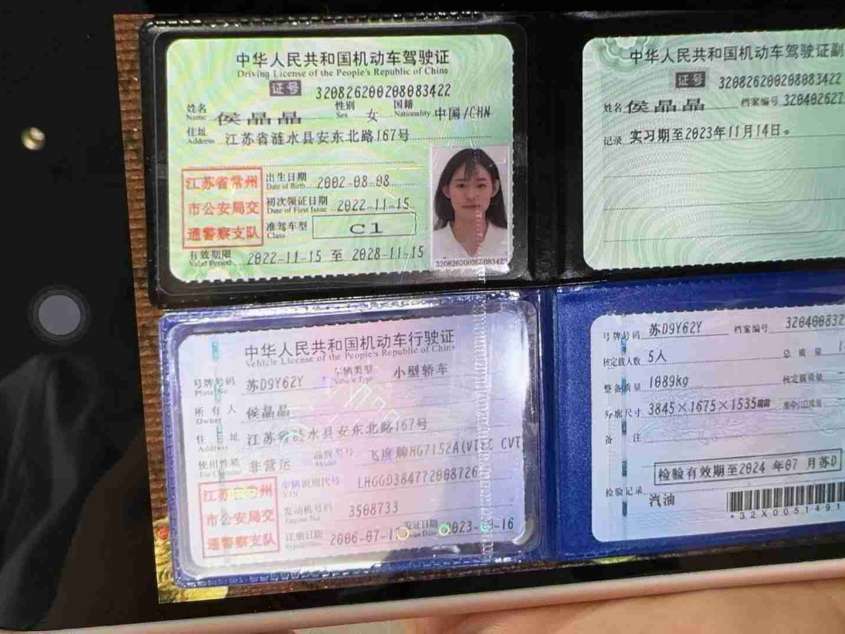 中华人民共和国机动车驾驶证
Driving License of the People's Republic of China
证号 320826200208083422
姓名 Name 侯晶晶 性别 Sex 女 国籍 Nationality 中国/CHN
住址 Address 江苏省涟水县安东北路167号
江苏省常州
市公安局交
通警察支队
出生日期 Date of Birth 2002-08-08
初次领证日期 Date of First Issue 2022-11-15
准驾车型 Class C1
有效期限 Valid Period 2022-11-15 至 2028-11-15
中华人民共和国机动车驾驶证副
证号 320826200208083422
姓名 Name 侯晶晶 档案编号
记录 实习期至2023年11月14日。
中华人民共和国机动车行驶证
Vehicle License of the People's Republic of China
号牌号码 Plate No. 苏D9Y62Y 车辆类型 Vehicle Type 小型轿车
所有人 Owner 侯晶晶
住址 江苏省涟水县安东北路167号
使用性质 非营运 品牌型号 Model 飞度牌HG7152A(VTEC CVT
江苏省常州
市公安局交
通警察支队
车辆识别代号 VIN LHGGD384772008726
发动机号码 Engine No. 3508733
注册日期 2006-07-1 发证日期 Issue Date
号牌号码 苏D9Y62Y 档案编号
核定载人数 5人 总质量
整备质量 1089kg 核定载质量
外廓尺寸 3845×1675×1535
备注
检验有效期至2024年07月苏D
检验记录
汽油